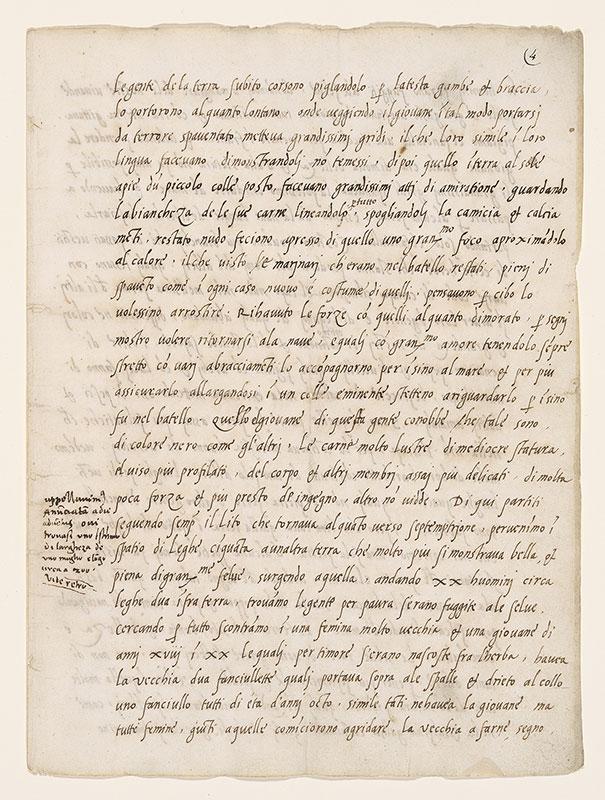 4
le gente de la terra subito corsono piglandolo p latesta gambe et braccia,
lo portorono alquanto lontano onde veggiendo il giovane ital modo portarsi
da terrore spaventato metteva grandissimj gridj ilche loro simile i loro
lingua facevano dimonstrandolj nō temessi, dipoi quello iterra al sole
apie dū piccolo colle posto, facevano grandissimj attj di amiratione, guardando
la biancheza de le sue carne lineandolo ptutto, spogliandolj la camicia et calcia
mētj, restato nudo feciono apresso di quello uno granmo foco aproximādolo
al calore, ilche visto le marinarj cherano nel batello restatj, pienj di
spavēto come i ognj caso nuovo e costume di quellj, pensavono p cibo lo
volessino arrostire. Rihavuto le forze cō quellj alquanto dimorato, p segnj
mostro volere ritornarsi ala nave, e qualj cō granmo amore tenendolo sēpre
stretto cō varj abracciamētj lo accōpagnorno per isino al mare, et per piu
assicurarlo allargandosi i un colle eminente stetteno ariguardarlo p isino
fu nel batello di questa gente conobbe che tale sono,
di colore nero come gl'altrj, le carne molto lustre, di mediocre statura,
el viso piu profilato, del corpo et altrj membrj assaj piu delicatj, di molta
poca forza et piu presto de ingegno, altro nō vidde. Di quj partitj
seguendo semp il lito che tornava alquāto verso septemptrione, pervenimo i
spatio di leghe ciquāta aunaltra terra che molto piu si monstrava bella, et
piena di granme selve, surgendo aquella, andando xx huominj circa
leghe dua ifra terra, trovāmo le gente per paura serano fuggite ale selve,
cercando p tutto scontrāmo i una femina molto vecchia et una giovane di
annj xviij i xx le qualj per timore serano nascoste fra lherba, havea
la vecchia dua fanciullette qualj portava sopra ale spalle et drieto al collo
uno fanciullo tuttj di eta d'annj octo, simile tātj nehavea la giovane ma
tutte femine, giūtj aquelle comiciorono agridare, la vecchia a farne segno,
trovasi uno
di largheza de
uno miglio e lōgo
circa a 200